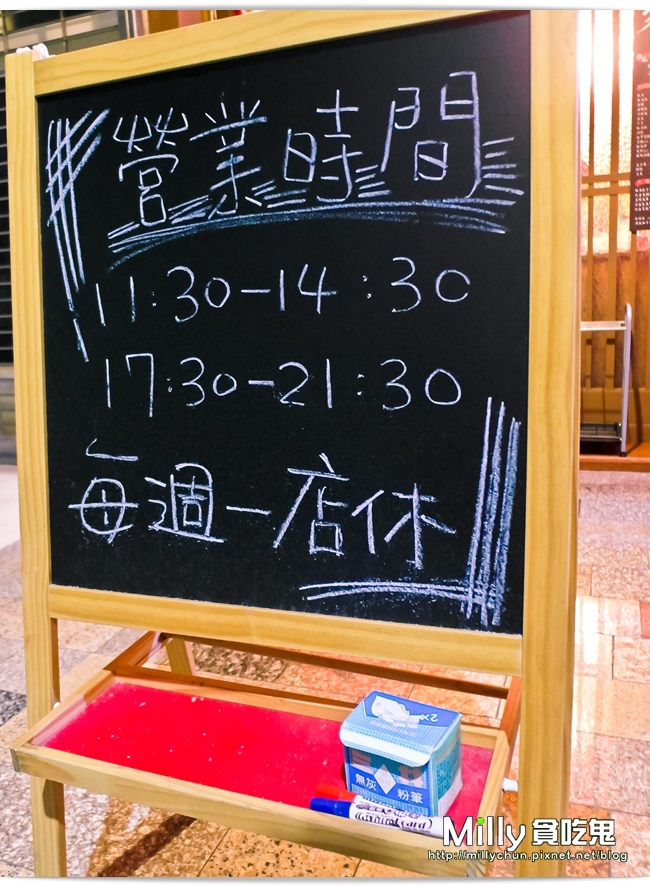 營業時間
11:30-14:30
17:30-21:30
每週一店休
2x
無灰 粉筆
Milly 貪吃鬼
http://millychun.pixnet.net/blog